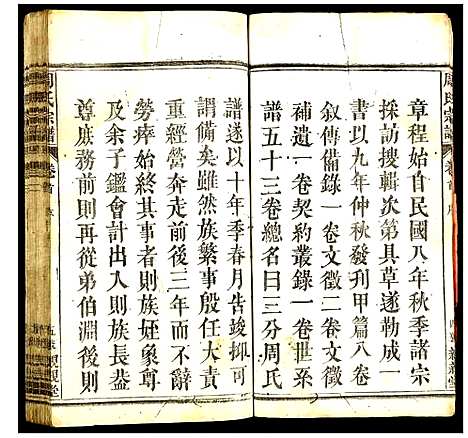 章程始自民國八年秋季諸宗
採訪搜輯次第具草遂勒成一
書以九年仲秋發刋甲篇八卷
敘傳備錄一卷文徵二卷文徵
補遺一卷契約叢錄一卷世系
譜五十三卷總名曰三分周氏
譜遂以十年季春月告竣抑可
謂備矣雖然族繁事殷任大責
重經營奔走前後三年而不辭
勞瘁始終其事者則族姪象尊
及余子鑑會計出入則族長恭
尊庶務前則再從弟伯淵後則
周氏宗譜
卷首